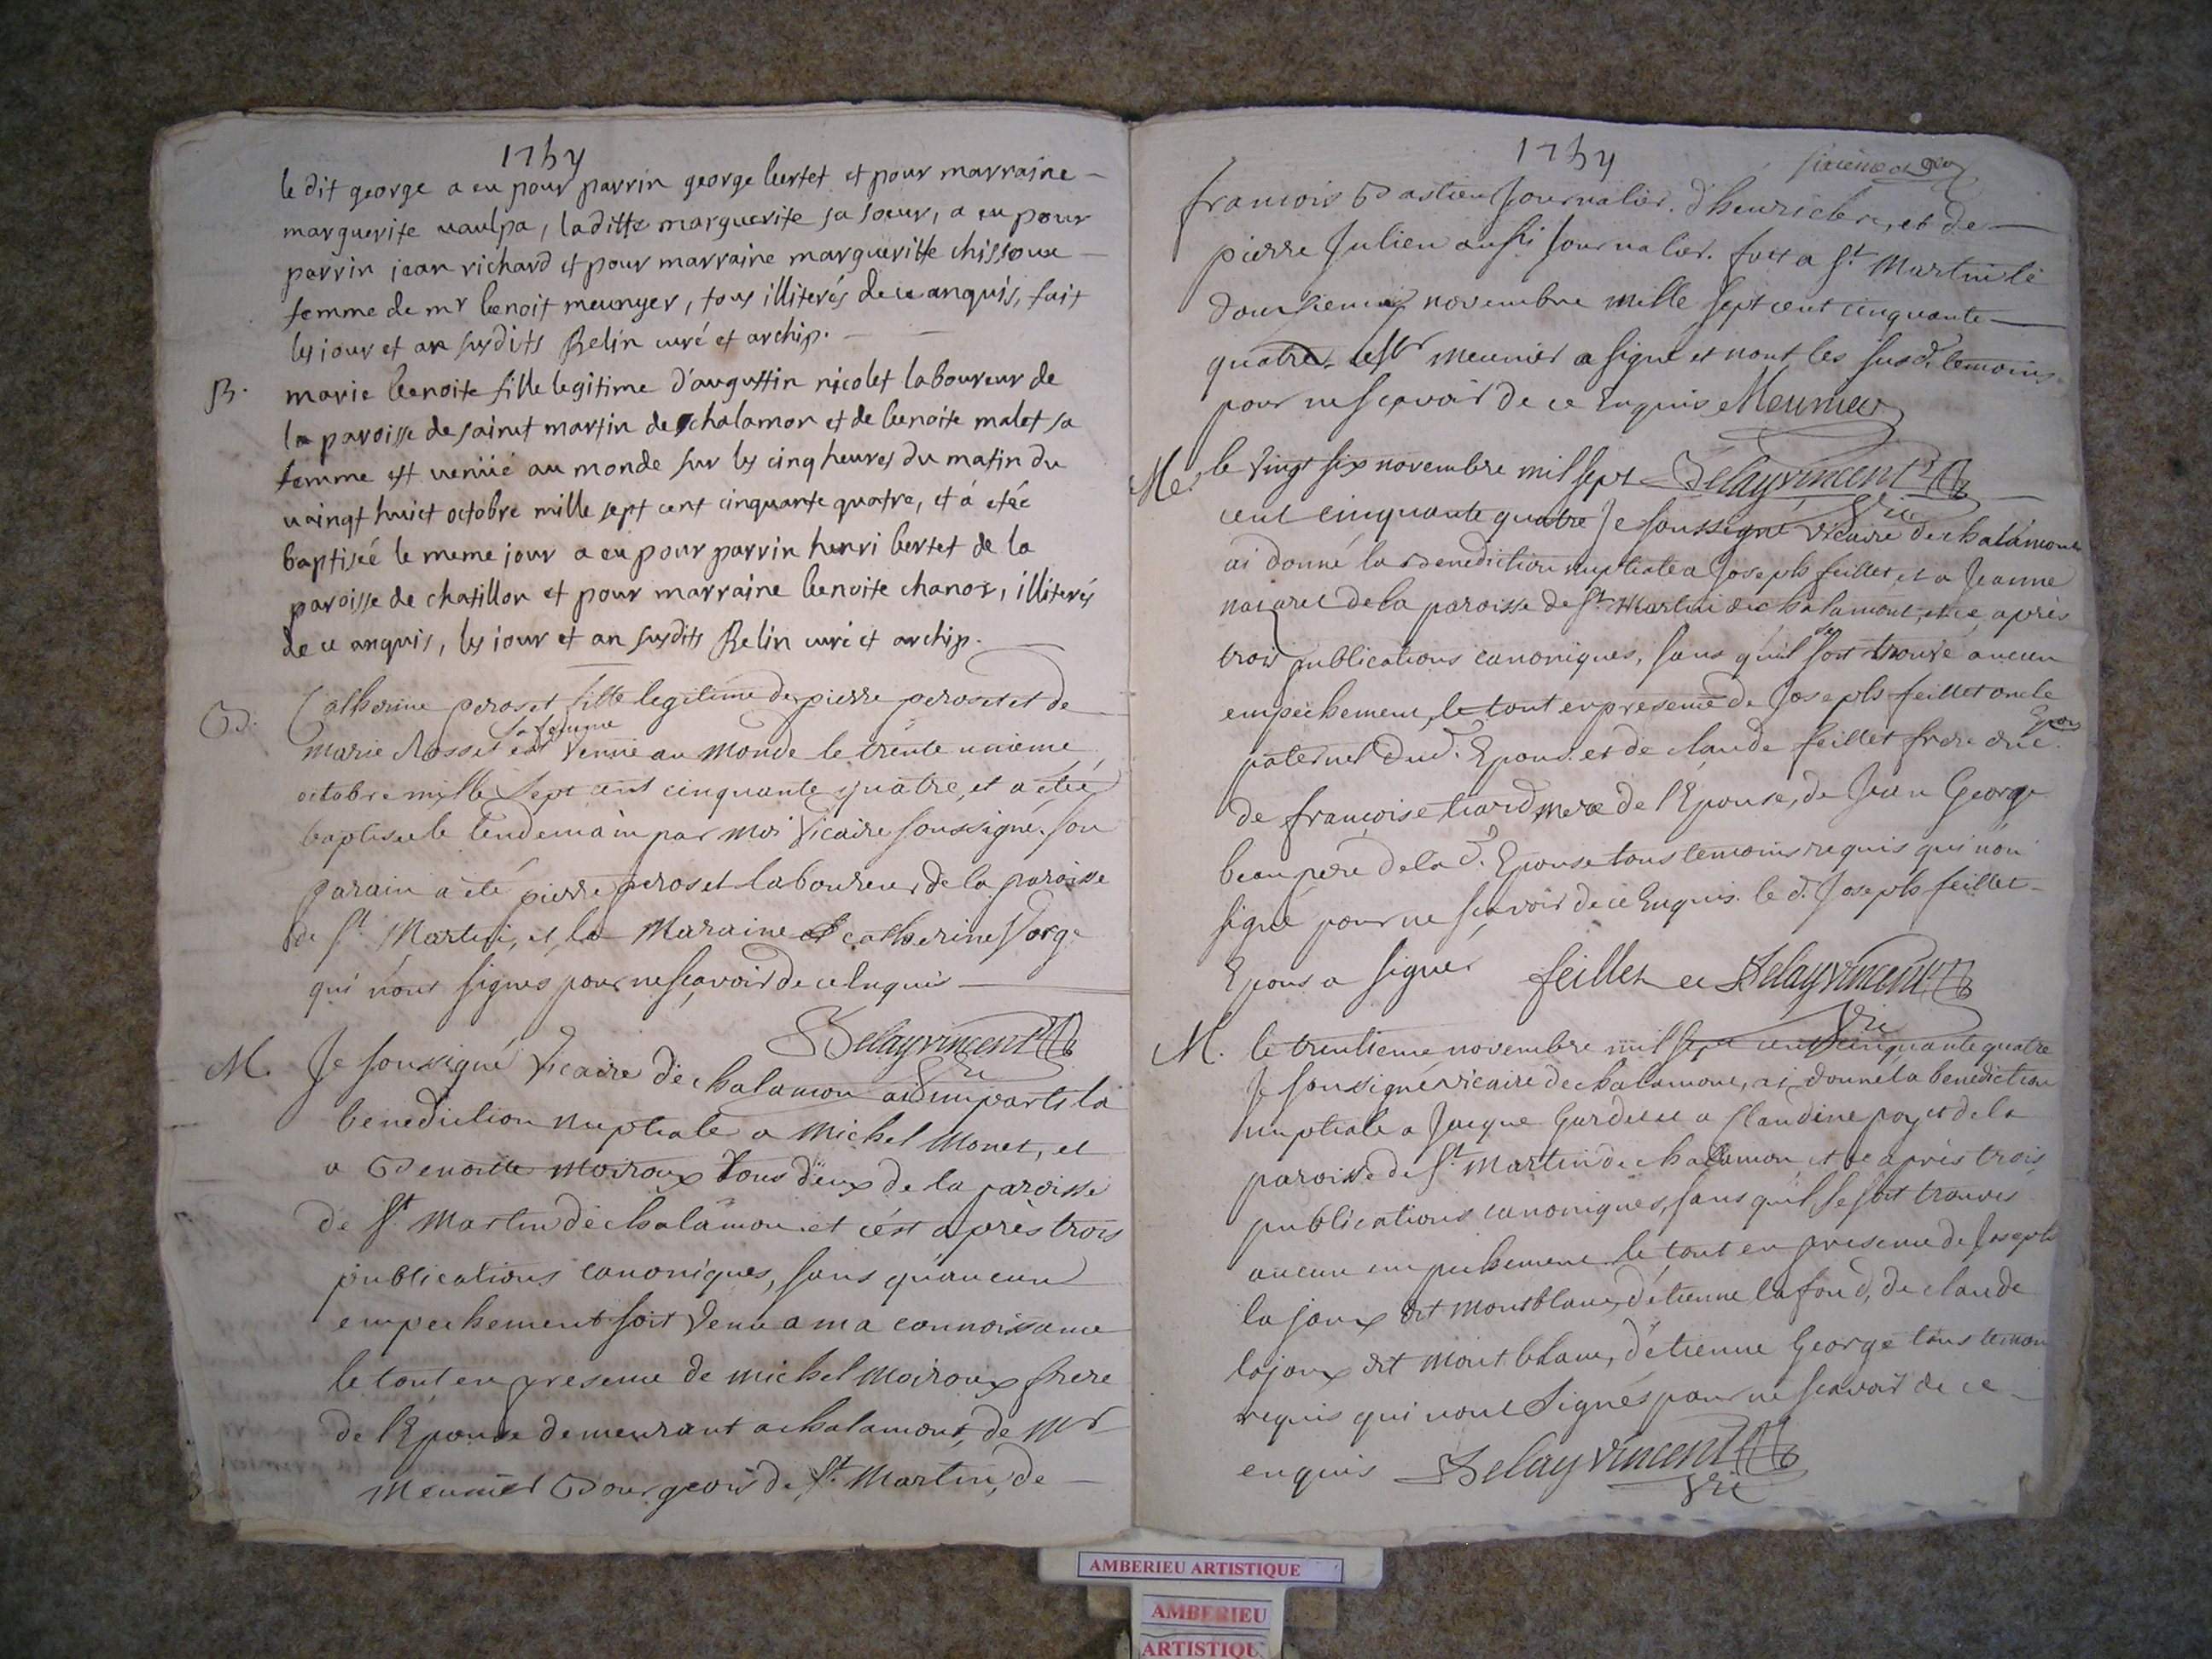 1754
le dit george a eu pour parrin george bertet et pour marraine
marguerite vaulpa, laditte marguerite sa soeur, a eu pour
parrin jean richard et pour marraine margueritte chissoux
femme de mr benoit meunyer, tous illiterés de ce anquis, fait
les jour et an susdits Relin curé et archip.
B. marie benoite fille legitime d'augustin nicolet laboureur de
la paroisse de saint martin de chalamon et de benoite malet sa
femme est venüe au monde sur les cinq heures du matin du
vaingt huict octobre mille sept cent cinquante quatre, et á etée
baptiséé le meme jour a eu pour parrin henri bertet de la
paroisse de chatillon et pour marraine benoite chanor, illiterés
de ce anquis, les jour et an susdits Relin curé et archip.
B. Catherine peroset fille legitime de pierre peroset et de
sa femme
marie Rosset est venüe au monde le trente unieme
octobre mille sept cent cinquante quatre, et a étée
baptisée le lendemain par moi Vicaire soussigné. son
parain a été pierre peroset laboureur de la paroisse
de St Martin, et la Maraine catherine Vorge
qui n'ont signes pour ne sçavoir de ce Enquis
Delayvincent
Vic
M. Je sousigné Vicaire de chalamon ai imparti la
benediction nuptiale a Michel Monet, et
a Benoitte Moiroux tous deux de la paroisse
de St Martin de chalamon et c'est après trois
publications canoniques, sans qu'aucun
empechement soit venu a ma connoissance
le tout en presence de Michel Moiroux frere
de l'Epouse demeurant a chalamont, de Mr
Meunier Bourgeois de St Martin, de
1754
françois Bastien Journalier. d'heurieu, et de
pierre Julien aussi Journalier. fait a St Martin le
douzieme novembre mille sept cent cinquante
quatre. le Sr Meunier a signé et nont les susd. temoins
pour ne sçavoir de ce Enquis Meunier
Delayvincent
Vic
Me. le vingt six novembre mil sept
cent cinquante quatre Je soussigné Vicaire de chalamont
ai donné la benediction nuptiale a Joseph feillet et a Jeanne
nazaret de la paroisse de St Martin de chalamont, et ce après
trois publications canoniques, sans qu'il se soit trouvé aucun
empechement, le tout en presence de Joseph feillet oncle
paternel dud. Epoux et de claude feillet frere dud. Epoux
de françoise liard mere de l'Epouse, de Jean George
beaupere de la d. Epouse tous temoins requis qui n'on
signé pour ne sçavoir de ce Enquis. le d. Joseph feillet
Epoux a signé feillet et Delayvincent
Vic
M. le trentieme novembre mil sept cent cinquante quatre
Je soussigné vicaire de chalamont, ai donné la benediction
nuptiale a Jacque et a Claudine poyet de la
paroisse de St Martin de chalamon, et ce après trois
publications canoniques, sans qu'il se soit trouvés
aucun empechement le tout en presence de Joseph
la joux dit montblanc, d'étienne lafond, de claude
lajoux dit Montblanc, d'étienne George tous temoin
requis qui nont Signés pour ne scavoir de ce
enquis Delayvincent
Vic
AMBERIEU ARTISTIQUE
AMBERIEU
ARTISTIQU